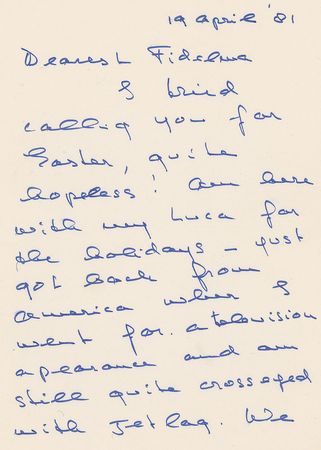 19 april '81
Dearest Fidelma
I tried
calling you for
Easter, quite
hopeless! Am here
with my Luca for
the holidays – just
got back from
America where I
went for a television
apearance and am
still quite crosseyed
with Jetlag. We